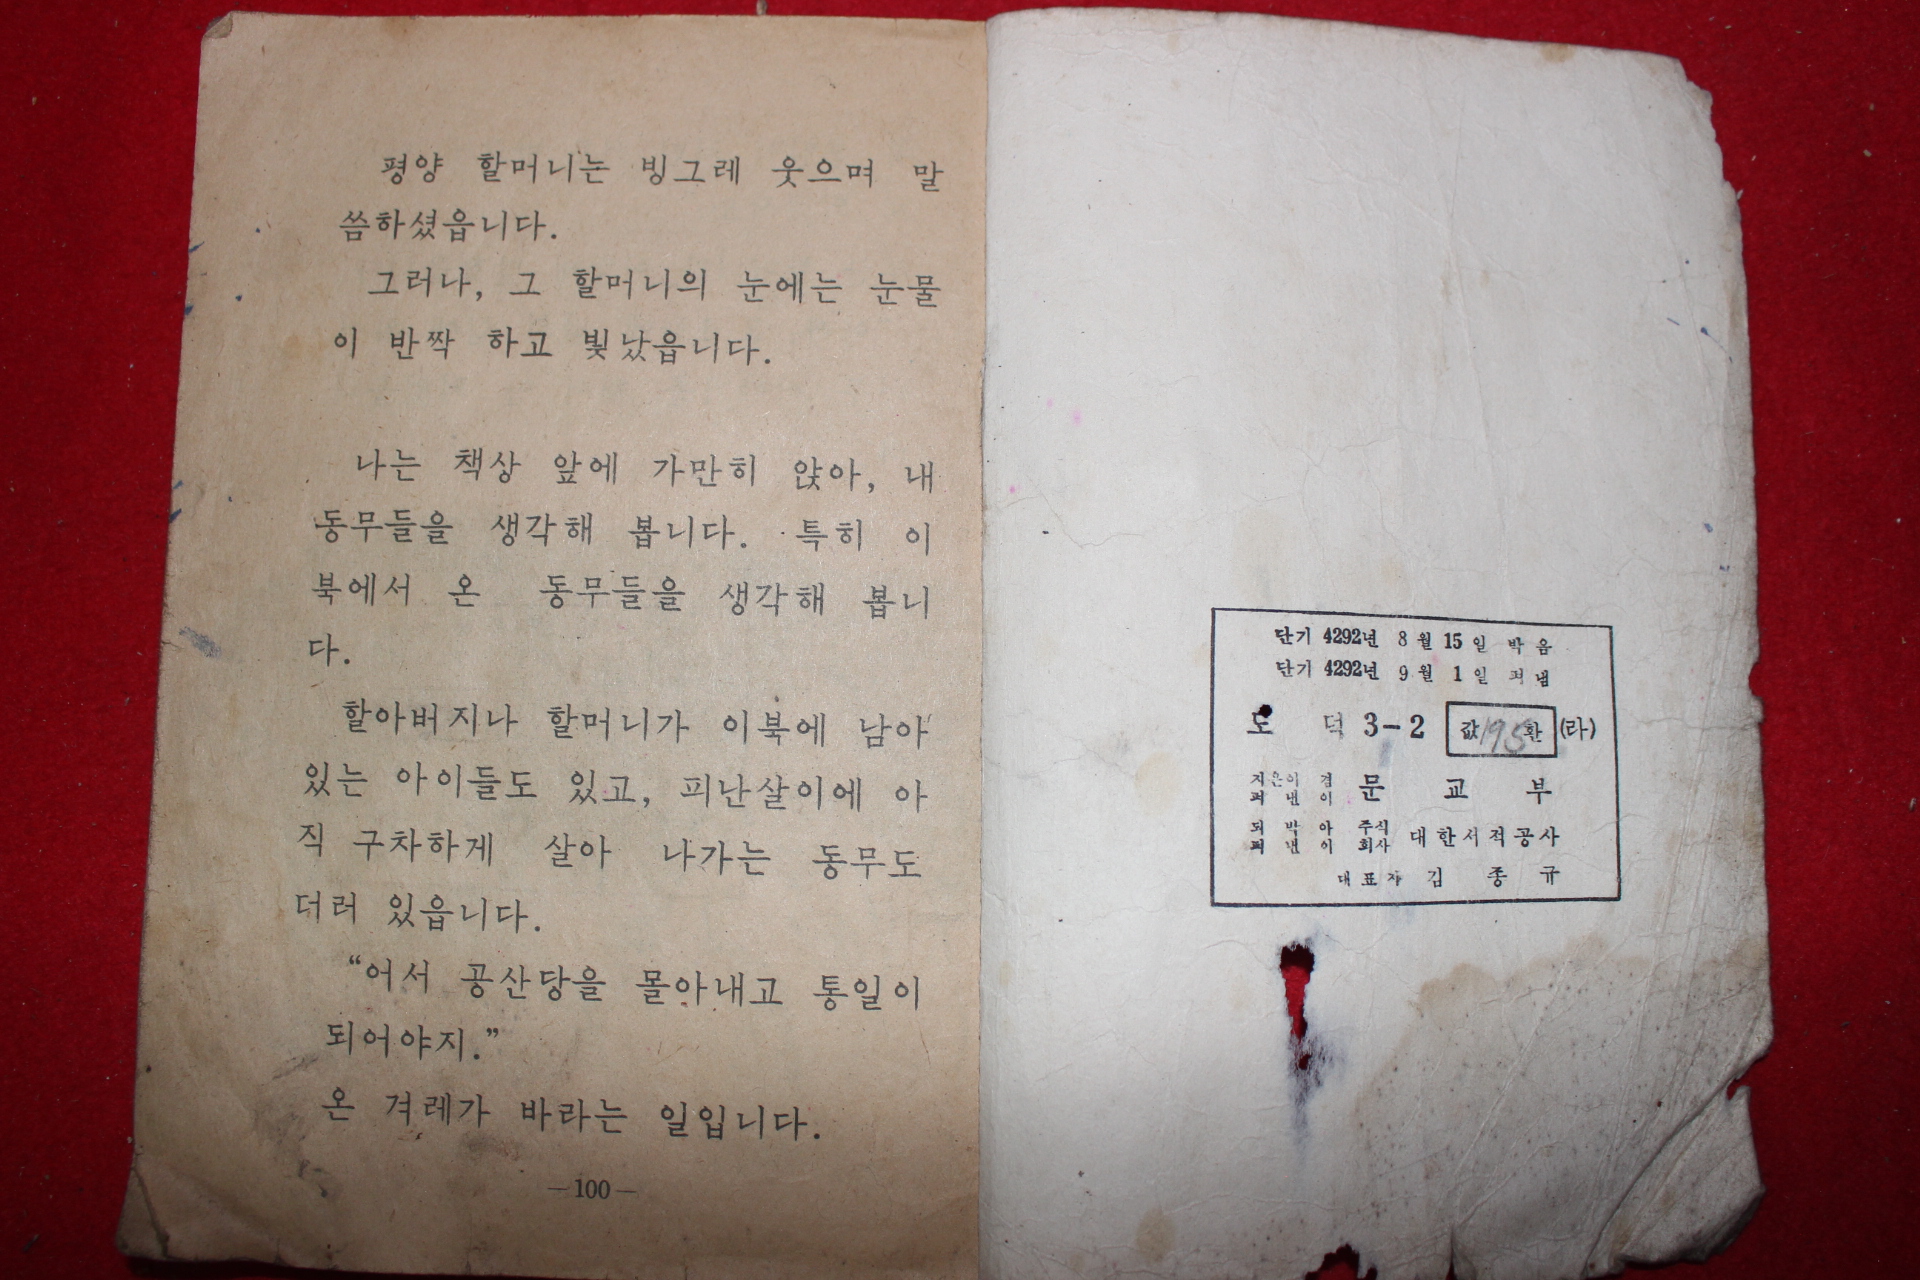 평양 할머니는 빙그레 웃으며 말
씀하셨읍니다.
그러나, 그 할머니의 눈에는 눈물
이 반짝 하고 빛났읍니다.
나는 책상 앞에 가만히 앉아, 내
동무들을 생각해 봅니다. 특히 이
북에서 온 동무들을 생각해 봅니
다.
할아버지나 할머니가 이북에 남아
있는 아이들도 있고, 피난살이에 아
직 구차하게 살아 나가는 동무도
더러 있읍니다.
“어서 공산당을 몰아내고 통일이
되어야지.”
온 겨레가 바라는 일입니다.
—100—
단기 4292년 8월 15일 박음
단기 4292년 9월 1일 펴냄
도 덕 3-2 값 195 환 (라)
지은이 겸
펴 낸 이 문 교 부
되 박 아 주식
펴 낸 이 회사 대한서적공사
대표자 김 종 규